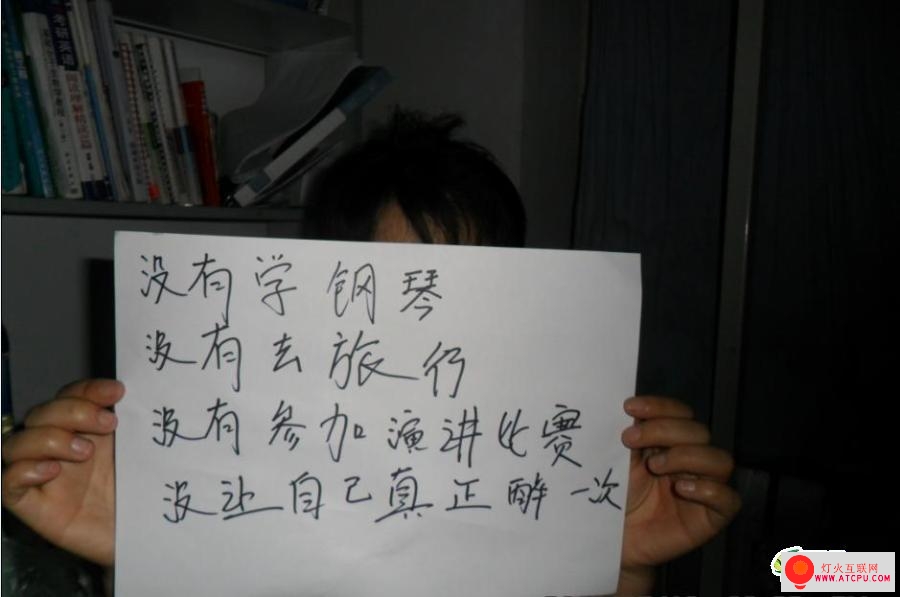 没有学钢琴
没有去旅行
没有参加演讲比赛
没让自己真正醉一次
考研英语
阅读理解精读
灯火互联网
WWW.ATCPU.COM